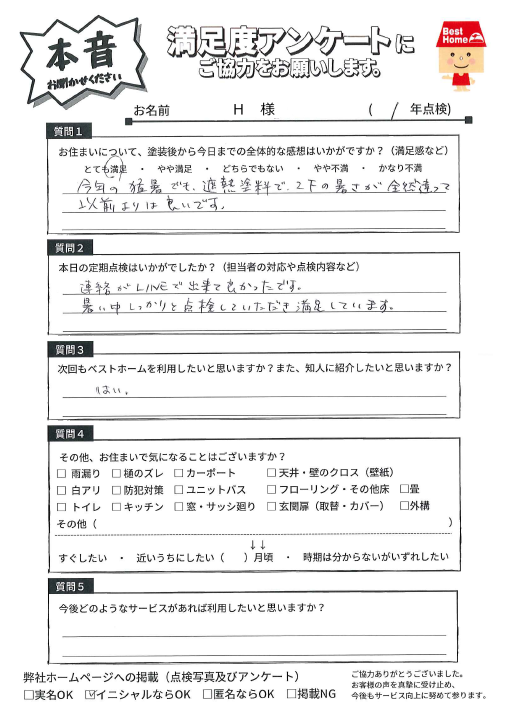 本音
お聞かせください
満足度アンケートに
ご協力をお願いします。
Best
Home
お名前 H 様 ( / 年点検)
質問1
お住まいについて、塗装後から今日までの全体的な感想はいかがですか？（満足感など）
とても満足 ・ やや満足 ・ どちらでもない ・ やや不満 ・ かなり不満
今年の猛暑でも、遮熱塗料で、2Fの暑さが全然違って
以前よりは良いです。
質問2
本日の定期点検はいかがでしたか？（担当者の対応や点検内容など）
連絡がLINEで出来て良かったです。
暑い中しっかりと点検していただき満足しています。
質問3
次回もベストホームを利用したいと思いますか？また、知人に紹介したいと思いますか？
はい。
質問4
その他、お住まいで気になることはございますか？
□ 雨漏り □ 樋のズレ □ カーポート □ 天井・壁のクロス（壁紙）
□ 白アリ □ 防犯対策 □ ユニットバス □ フローリング・その他床 □畳
□ トイレ □ キッチン □ 窓・サッシ廻り □ 玄関扉（取替・カバー） □外構
その他（ ）
↓↓
すぐしたい ・ 近いうちにしたい（ ）月頃 ・ 時期は分からないがいずれしたい
質問5
今後どのようなサービスがあれば利用したいと思いますか？
弊社ホームページへの掲載（点検写真及びアンケート）
□実名OK ☑イニシャルならOK □匿名ならOK □掲載NG
ご協力ありがとうございました。
お客様の声を真摯に受け止め、
今後もサービス向上に努めて参ります。